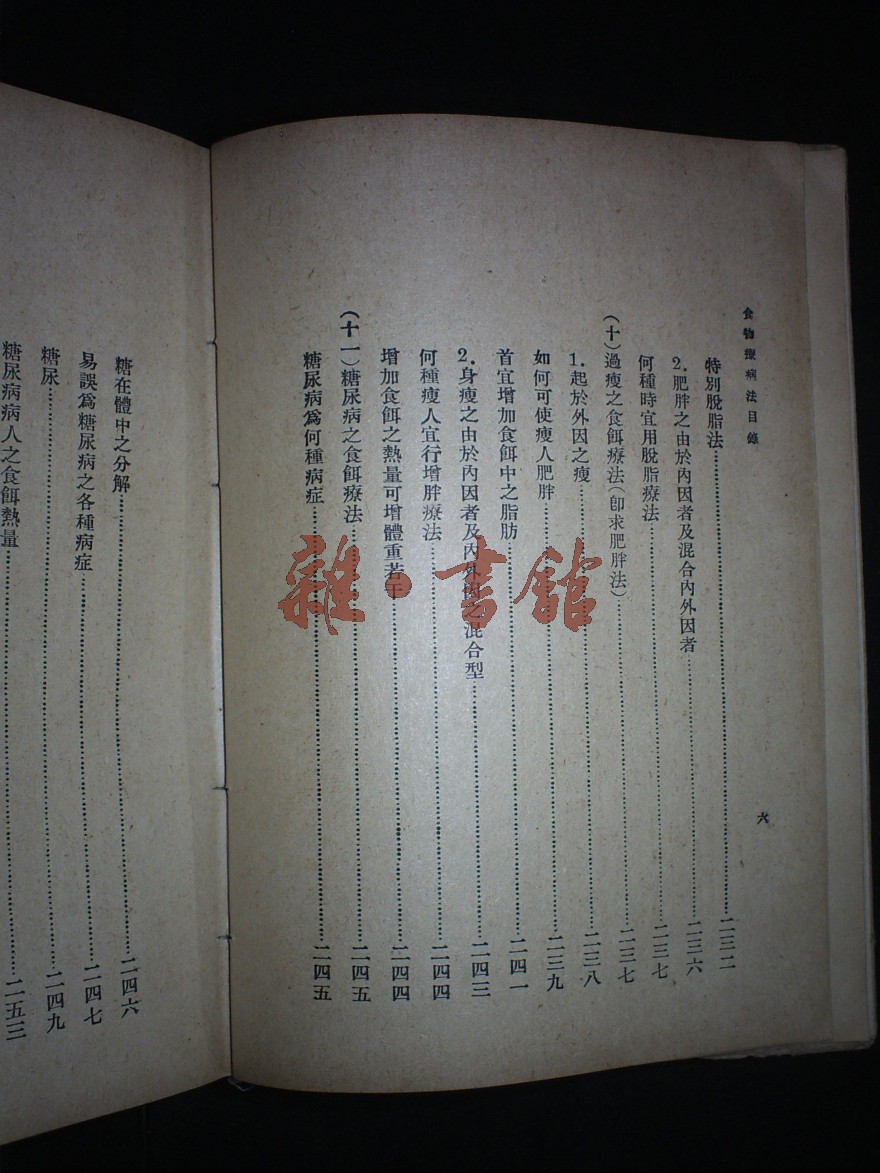 食物療病法目錄
六
特別脫脂法……二三二
2.肥胖之由於內因者及混合內外因者……二三六
何種時宜用脫脂療法……二三七
(十)過瘦之食餌療法(卽求肥胖法)……二三七
1.起於外因之瘦……二三八
如何可使瘦人肥胖……二三九
首宜增加食餌中之脂肪……二四一
2.身瘦之由於內因者及內外因之混合型……二四三
何種瘦人宜行增胖療法……二四四
增加食餌之熱量可增體重若干……二四四
(十一)糖尿病之食餌療法……二四五
糖尿病爲何種病症……二四五
糖在體中之分解……二四六
易誤爲糖尿病之各種病症……二四七
糖尿……二四九
糖尿病病人之食餌熱量……二五三
雜·書館